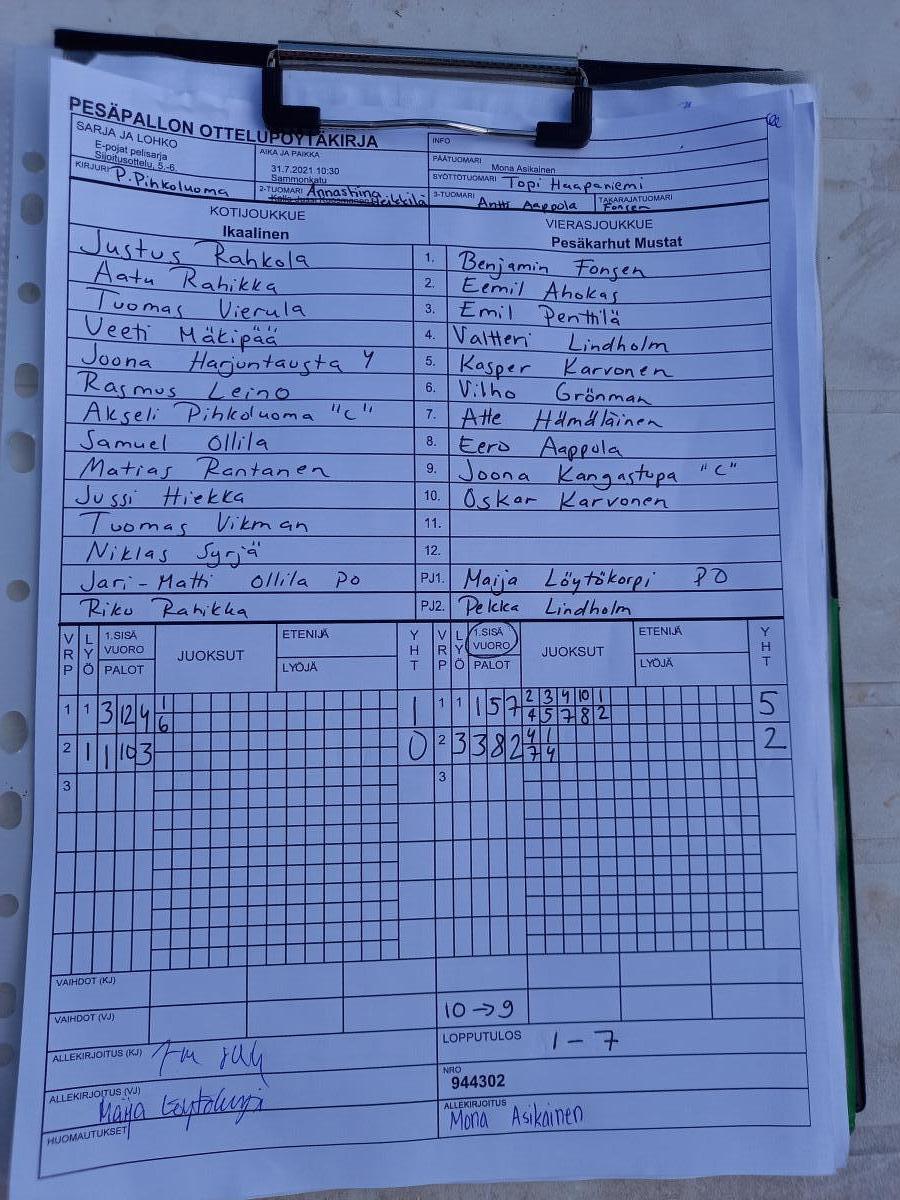 PESÄPALLON OTTELUPÖYTÄKIRJA
SARJA JA LOHKO
E-pojat pelisarja
Sijoitusottelu, 5.-6.
KIRJURI P. Pihkoluoma
AIKA JA PAIKKA
31.7.2021 10:30
Sammonkatu
2-TUOMARI Annastiina Heikkilä
INFO
PÄÄTUOMARI Mona Asikainen
SYÖTTÖTUOMARI Topi Haapaniemi
3-TUOMARI Antti Aappola
TAKARAJATUOMARI Fonsen
KOTIJOUKKUE
Ikaalinen
VIERASJOUKKUE
Pesäkarhut Mustat
Justus Rahkola 1. Benjamin Fonsen
Aatu Rahikka 2. Eemil Ahokas
Tuomas Vierula 3. Emil Penttilä
Veeti Mäkipää 4. Valtteri Lindholm
Joona Harjuntausta Y 5. Kasper Karvonen
Rasmus Leino 6. Vilho Grönman
Akseli Pihkoluoma "C" 7. Atte Hämäläinen
Samuel Ollila 8. Eero Aappola
Matias Rantanen 9. Joona Kangastupa "C"
Jussi Hiekka 10. Oskar Karvonen
Tuomas Vikman 11.
Niklas Syrjä 12.
Jari-Matti Ollila PO PJ1. Maija Löytökorpi PO
Riku Rahikka PJ2. Pekka Lindholm
VRP LYÖ 1.SISÄ VUORO PALOT JUOKSUT ETENIJÄ LYÖJÄ YHT VRP LYÖ 1.SISÄ VUORO PALOT JUOKSUT ETENIJÄ LYÖJÄ YHT
1 1 3 12 4 1 1 1 1 5 7 2 3 9 10 1 5
6 4 5 7 8 2
2 1 1 10 3 0 2 3 3 8 2 4 1 2
7 4
3 3
VAIHDOT (KJ)
VAIHDOT (VJ) 10 → 9
ALLEKIRJOITUS (KJ) LOPPUTULOS 1 – 7
NRO
944302
ALLEKIRJOITUS (VJ) Maija Löytökorpi
ALLEKIRJOITUS
Mona Asikainen
HUOMAUTUKSET